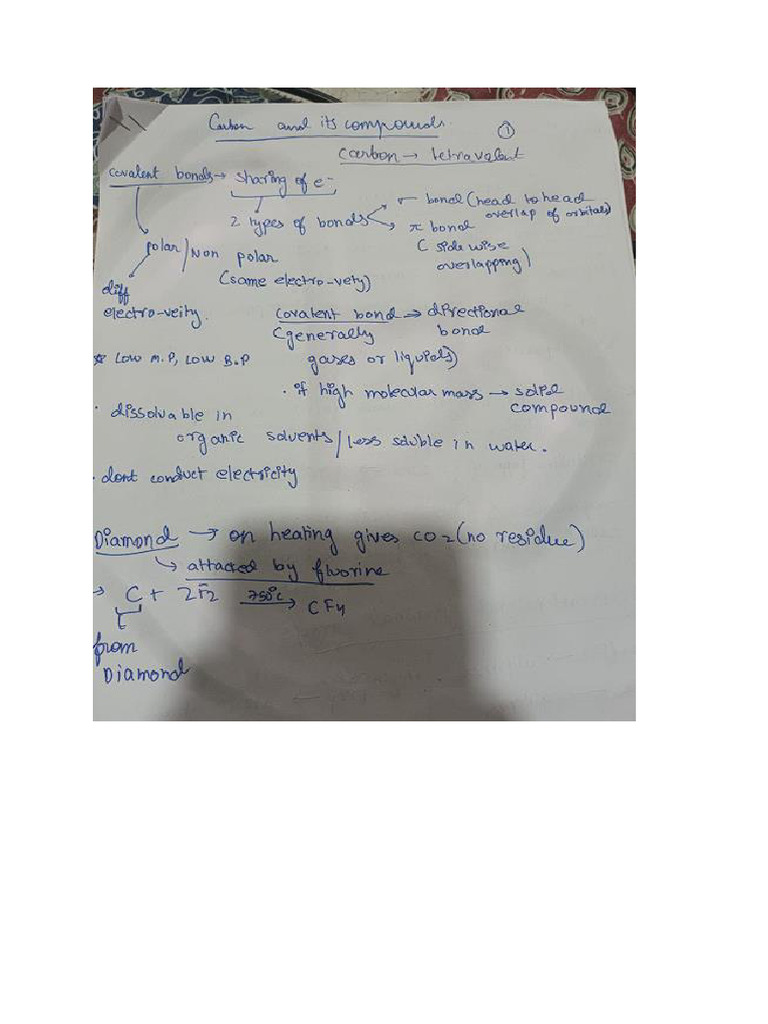 Carbon and its compounds.
①
Carbon → tetravalent
covalent bonds → sharing of e-
2 types of bonds
σ bond (head to head
overlap of orbitals)
π bond
( side wise
overlapping)
polar / Non polar
(same electro-vety)
diff
electro-veity.
Covalent bond → directional
(generally bond
gases or liquids)
* Low M.P, Low B.P
· if high molecular mass → solid
compound
· dissolvable in
organic solvents / less soluble in water.
· dont conduct electricity
Diamond → on heating gives CO2 (no residue)
↳ attacked by fluorine
→ C + 2F2 750°C → CF4
from
Diamond